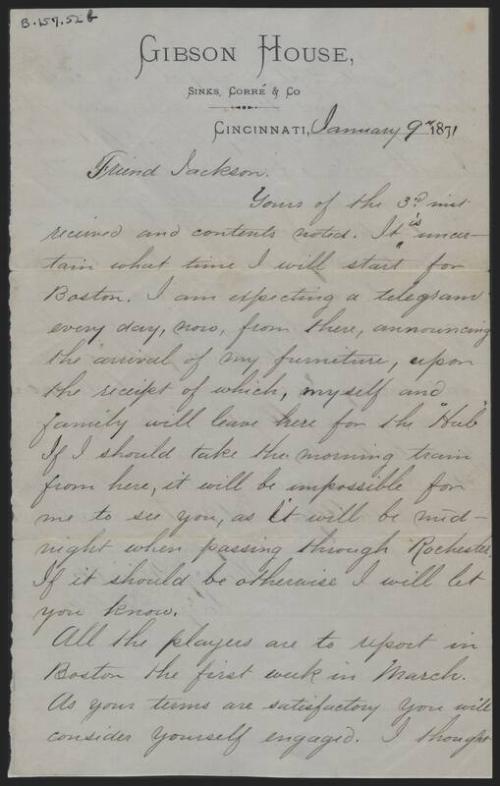 B-157.52b
GIBSON HOUSE,
SINKS, CORRÉ & CO
CINCINNATI, January 9th 1871
Friend Jackson.
Yours of the 3rd inst
received and contents noted. It is uncer-
tain what time I will start for
Boston. I am expecting a telegram
every day, now, from there, announcing
the arrival of my furniture, upon
the receipt of which, myself and
family will leave here for the "Hub"
If I should take the morning train
from here, it will be impossible for
me to see you, as it will be mid-
night when passing through Rochester.
If it should be otherwise I will let
you know.
All the players are to report in
Boston the first week in March.
As your terms are satisfactory you will
consider yourself engaged. I thought